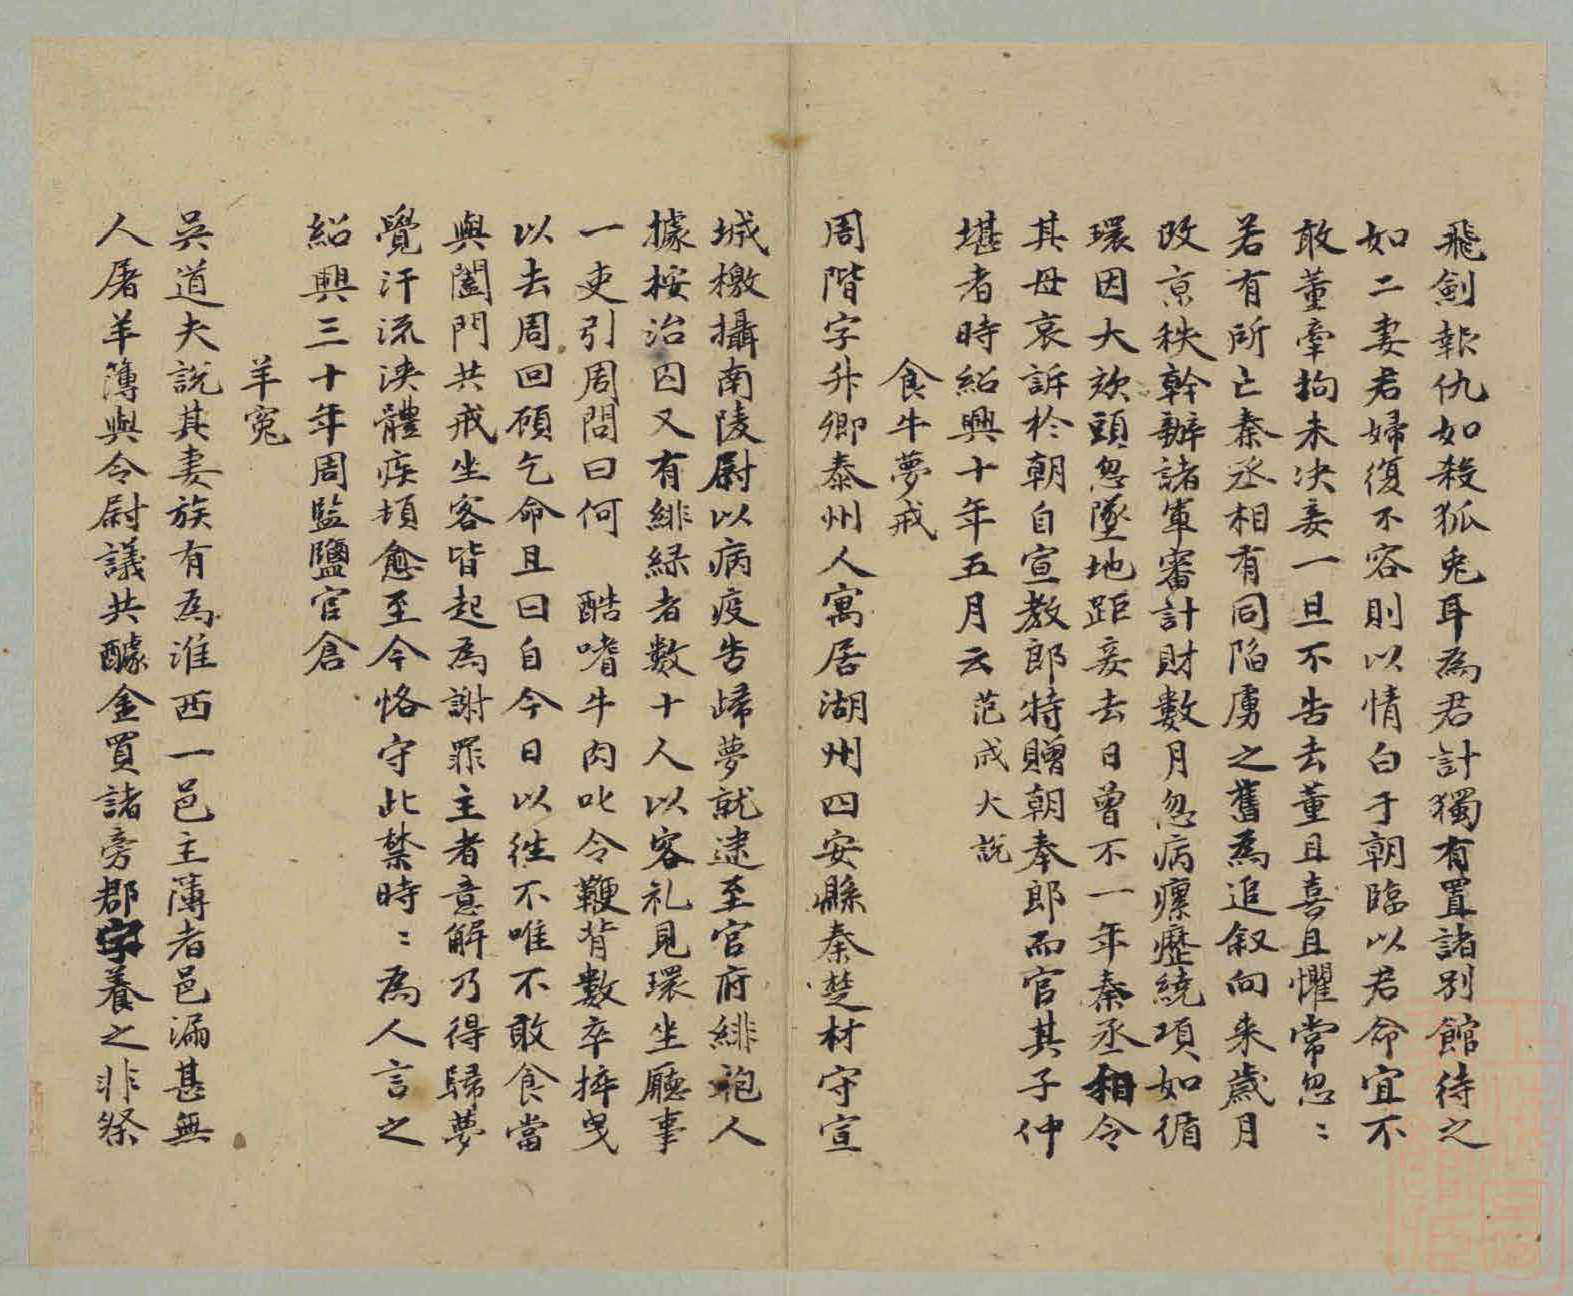 飛劍報仇如殺狐兎耳為君計獨有置諸別館待之
如二妻君婦復不容則以情白于朝臨以君命宜不
敢董牽拘未决妾一旦不告去董且喜且懼常忽〻
若有所亡秦丞相有同陷虜之舊為追叙向来歲月
改京秩幹辦諸軍審計財數月忽病瘰癧繞項如循
環因大欬頭忽墜地距妾去日曾不一年秦丞相令
其母哀訴於朝自宣教郎特贈朝奉郎而官其子仲
堪者時紹興十年五月云范成大說
食牛夢戒
周階字升卿泰州人寓居湖州四安縣秦楚材守宣
城檄攝南陵尉以病疫告歸夢就逮至官府緋袍人
據桉治囚又有緋緑者數十人以客礼見環坐廳事
一吏引周問曰何 酷嗜牛肉叱令鞭背數卒捽曳
以去周回顧乞命且曰自今日以徃不唯不敢食當
與闔門共戒坐客皆起為謝罪主者意解乃得歸夢
覺汗流浹體疾頓愈至今恪守此禁時〻為人言之
紹興三十年周監鹽官倉
羊寃
吳道夫說其妻族有為淮西一邑主薄者邑漏甚無
人屠羊薄與令尉議共醵金買諸旁郡字養之非祭